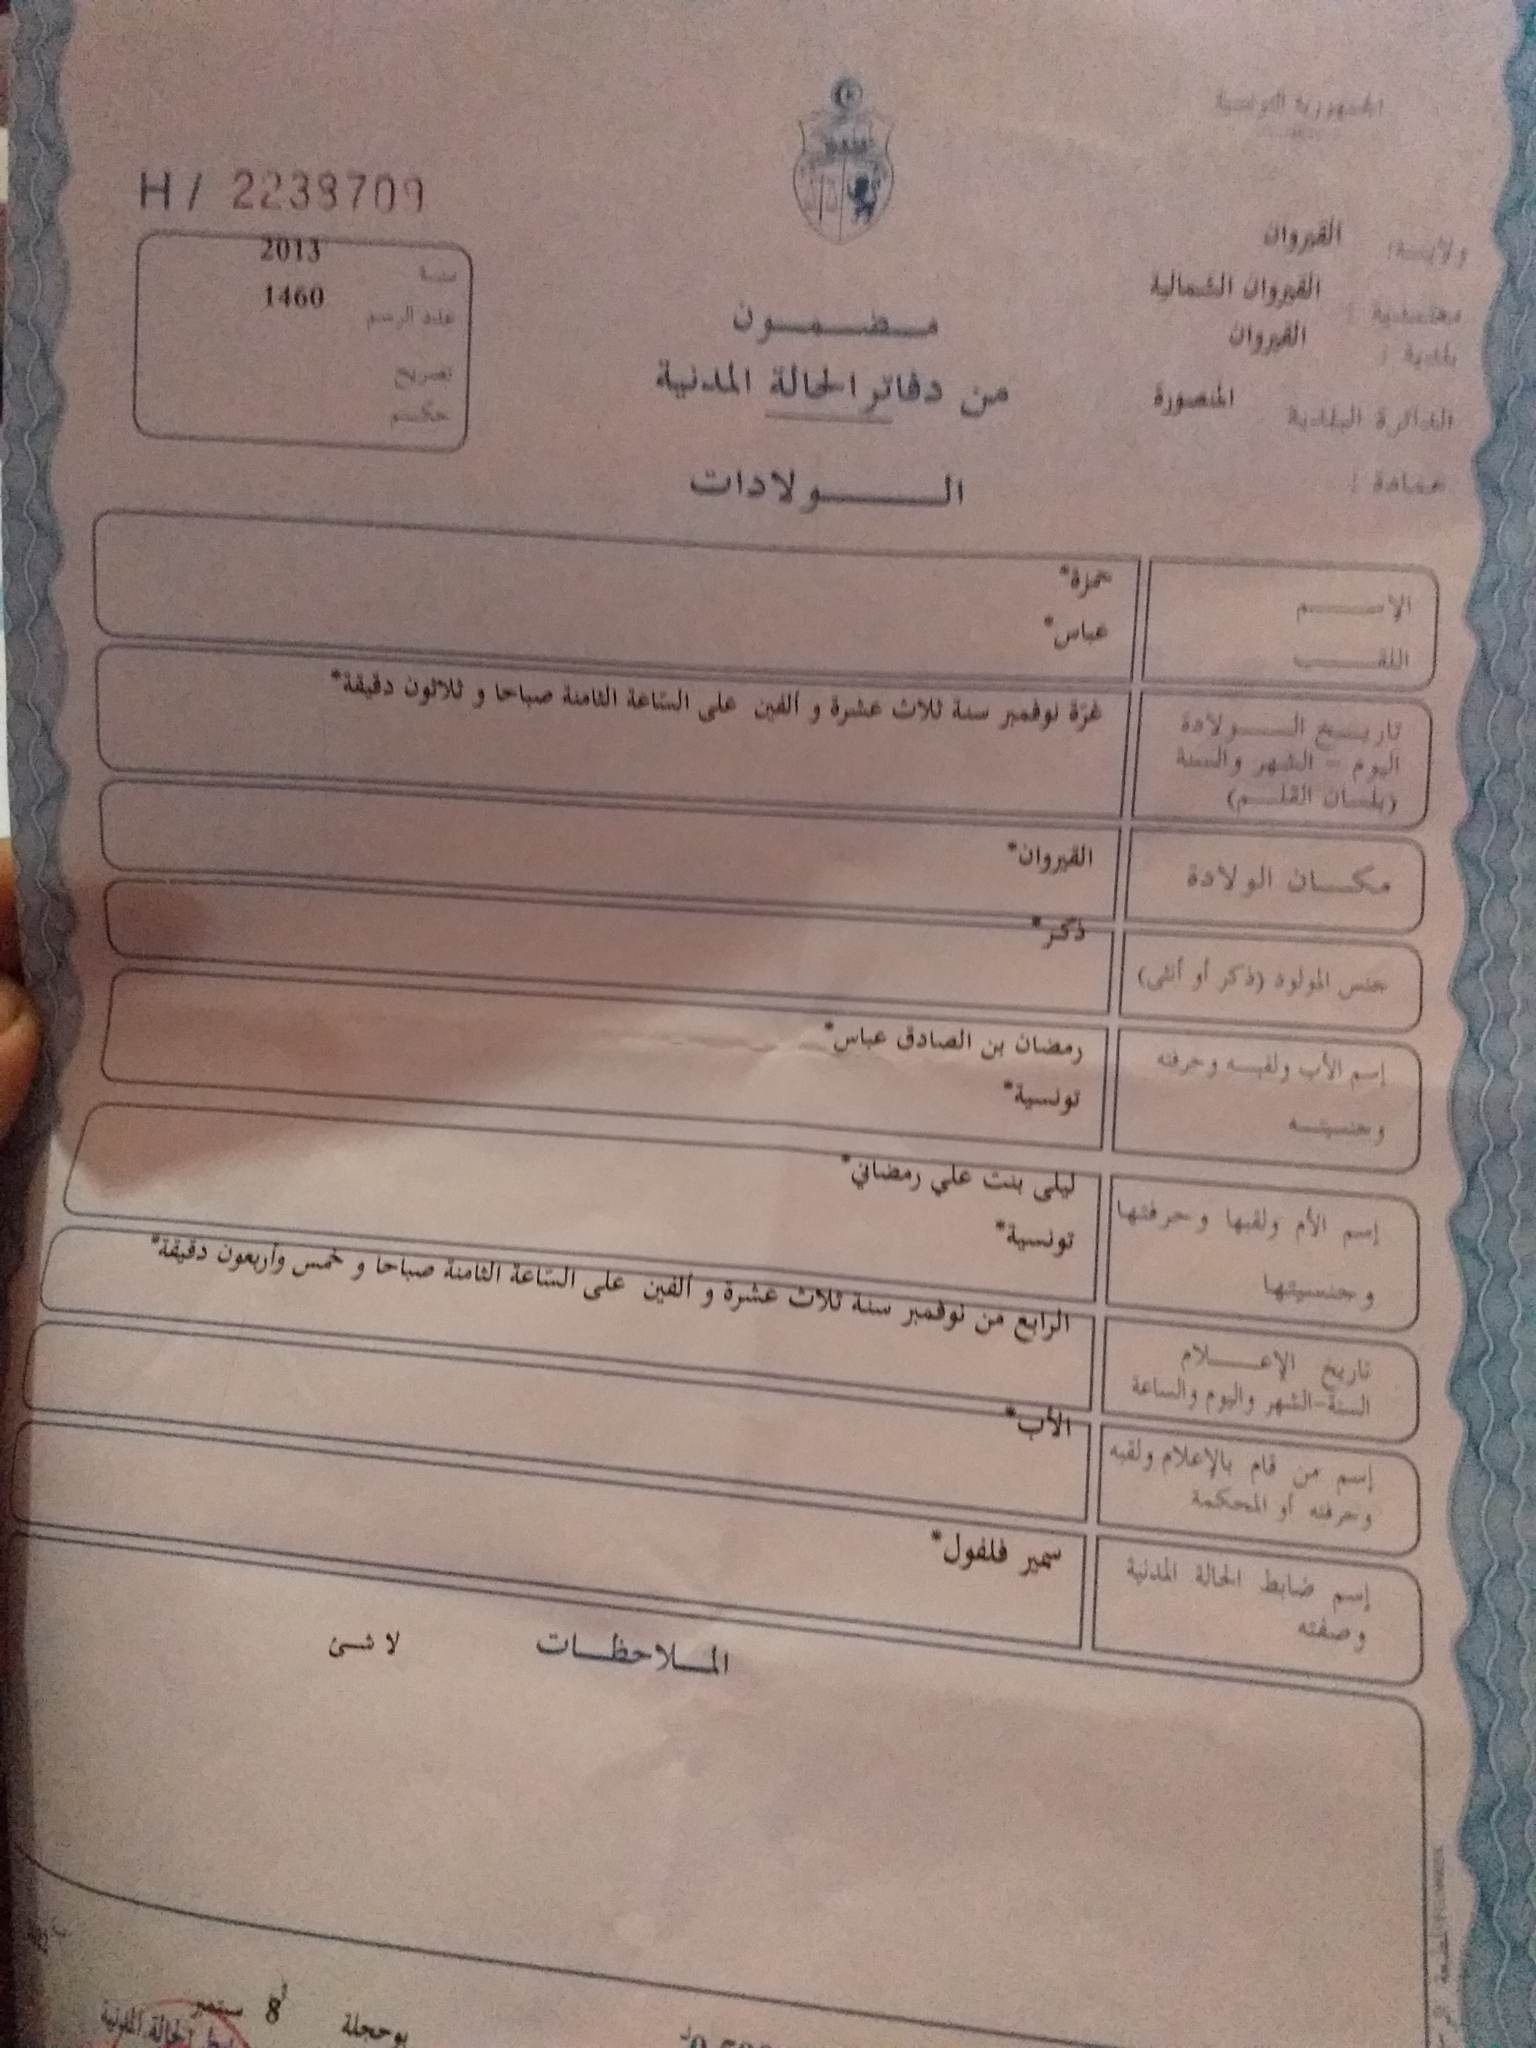 الجمهورية التونسية
H / 2238709
ولايـــة: القيروان
معتمدية : القيروان الشمالية
بلدية : القيروان
الدائرة البلدية المنصورة
عمادة :
سنة 2013
عدد الرسم 1460
تصريح
حكم
مـضـمـون
من دفاتر الحالة المدنية
الـــولادات
الإســـم حمزة*
اللقــب عباس*
تاريــخ الـــولادة غرّة نوفمبر سنة ثلاث عشرة و ألفين على السّاعة الثامنة صباحا و ثلاثون دقيقة*
اليوم - الشهر والسنة
(بلسان القلم)
مكــان الولادة القيروان*
جنس المولود (ذكر أو أنثى) ذكر*
إسم الأب ولقبـه وحرفته رمضان بن الصادق عباس*
وجنسيتــه تونسية*
إسم الأم ولقبها وحرفتها ليلى بنت علي رمضاني*
وجنسيتها تونسية*
تاريخ الإعــلام الرابع من نوفمبر سنة ثلاث عشرة و ألفين على السّاعة الثامنة صباحا و خمس وأربعون دقيقة*
السنة-الشهر واليوم والساعة
إسم من قام بالإعلام ولقبه الأب*
وحرفته أو المحكمة
إسم ضابط الحالة المدنية سمير فلفول*
وصفته
المـلاحظـات لا شئ
بوحجلة 8 سبتمبر
الحالة المدنية